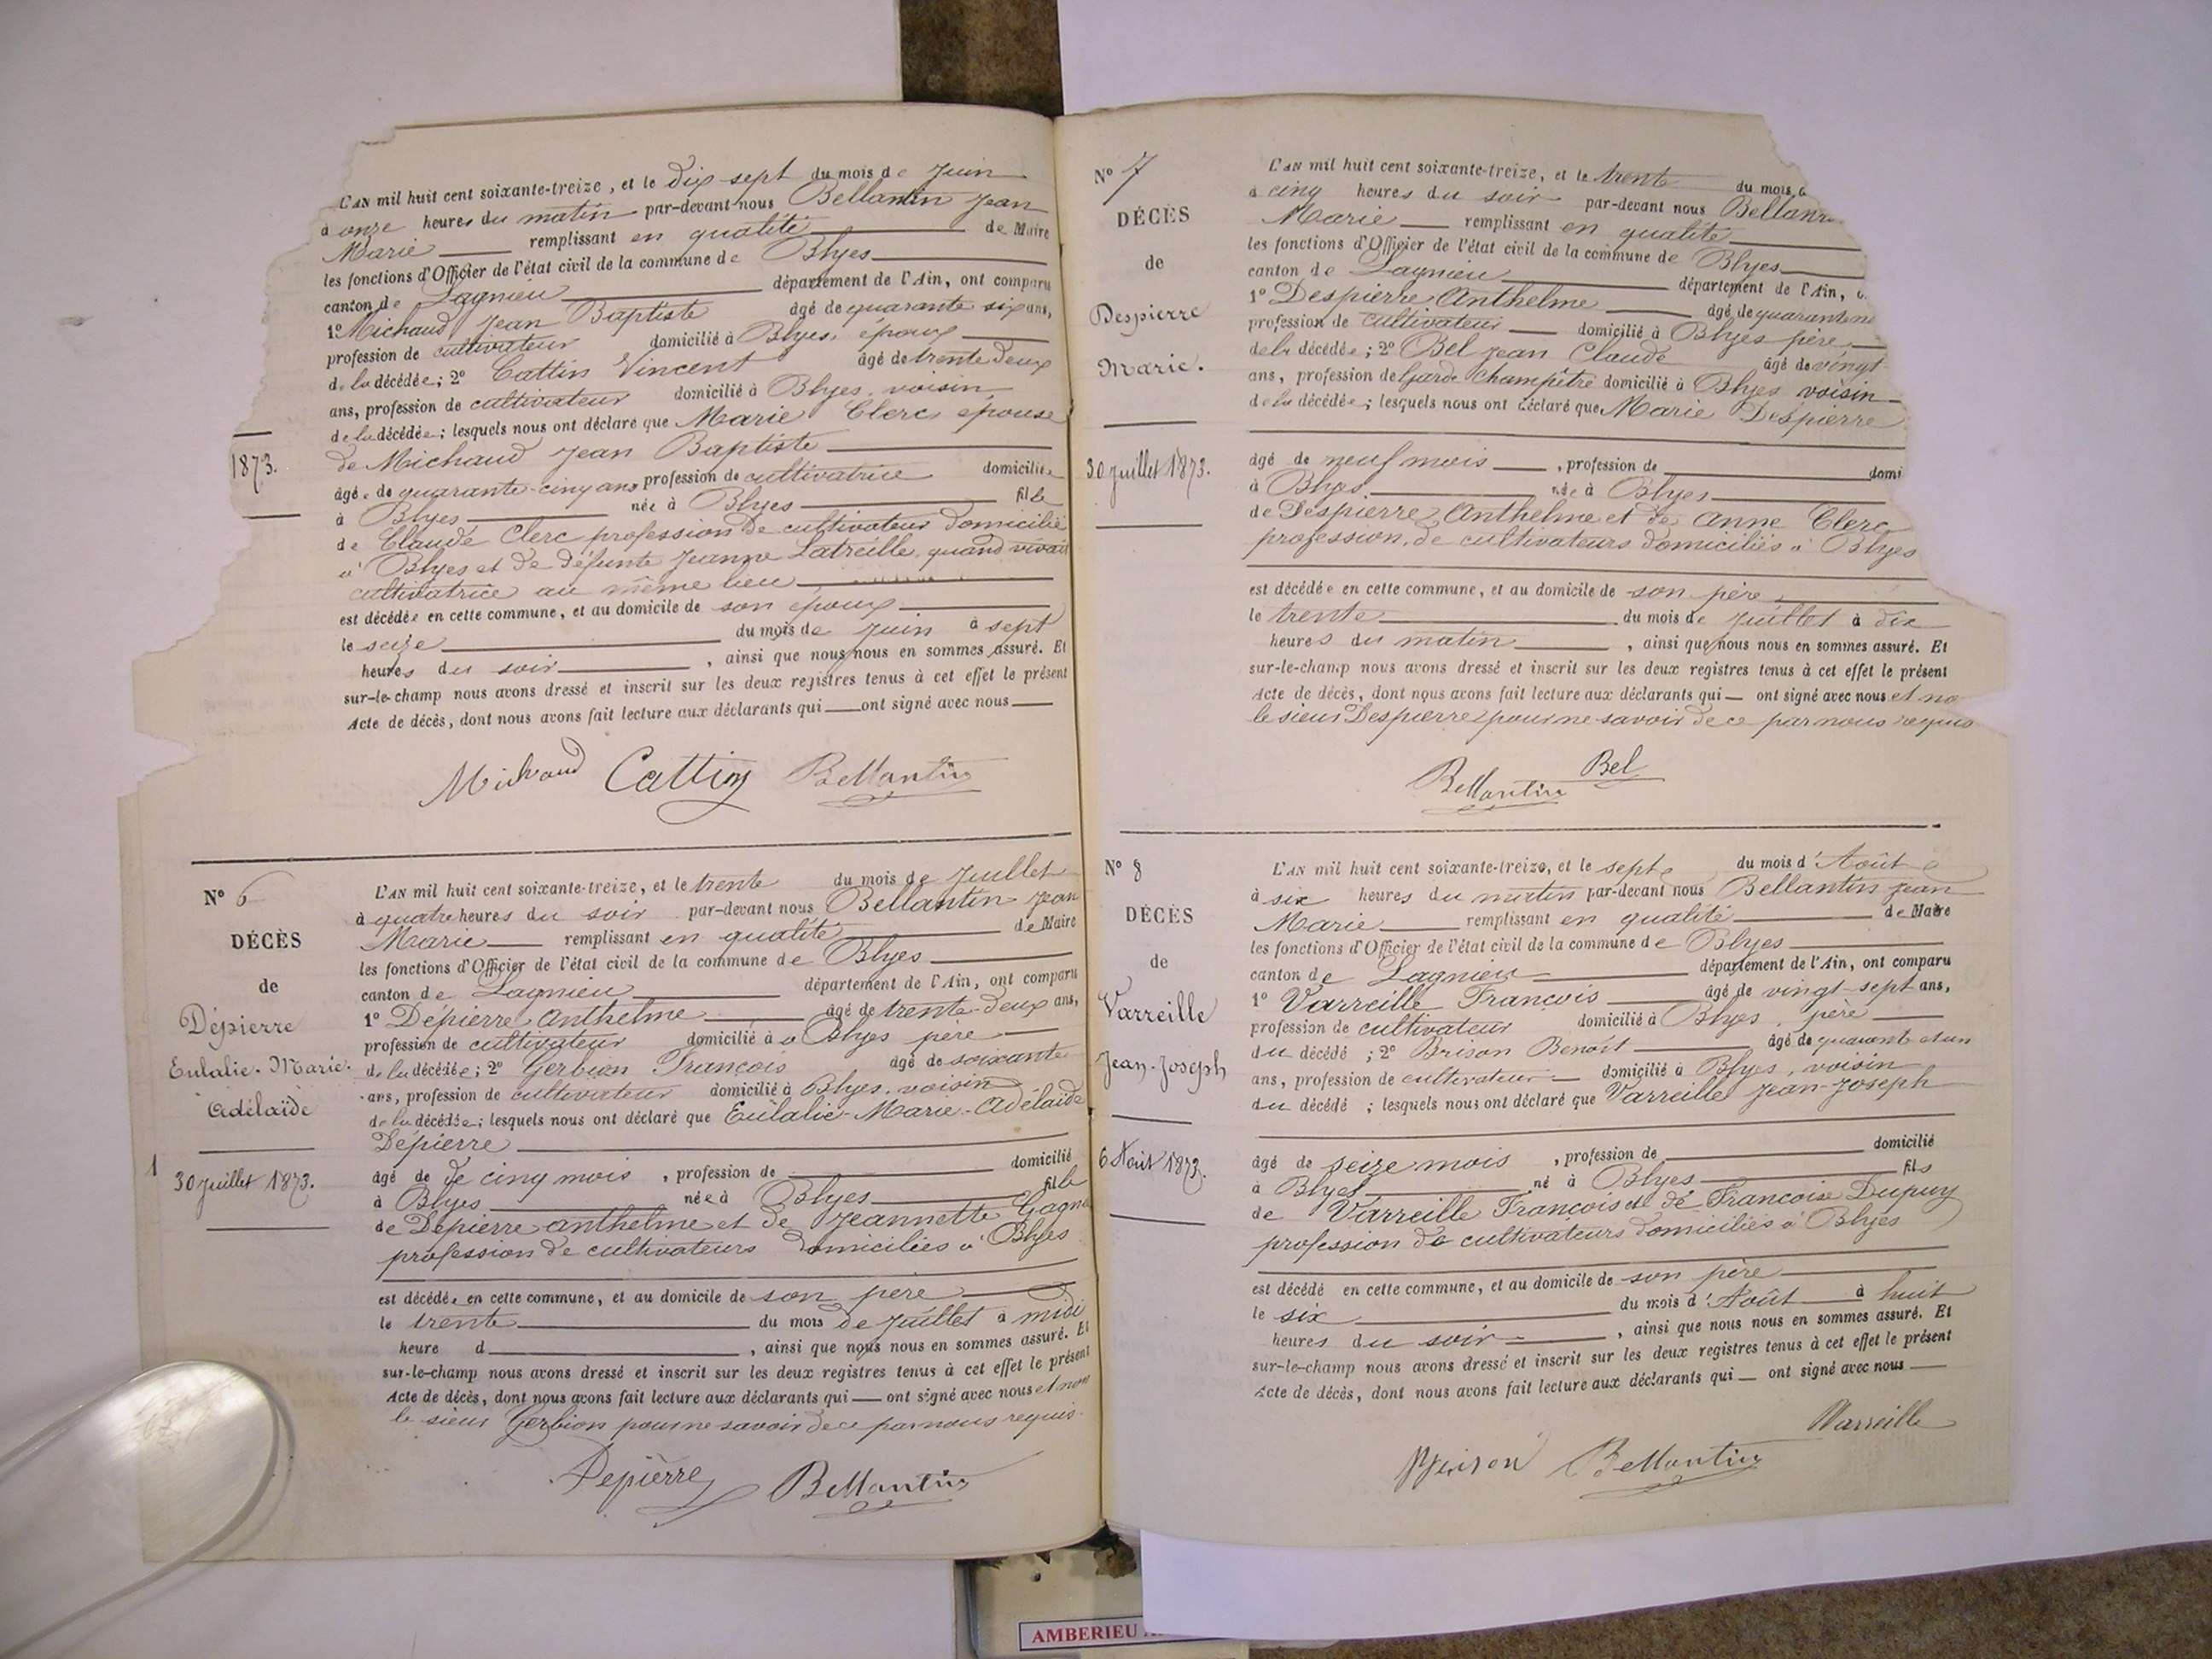 L'AN mil huit cent soixante-treize, et le dix sept du mois de Juin
à onze heures du matin par-devant nous Bellantin Jean
Marie remplissant en qualité de Maire
les fonctions d'Officier de l'état civil de la commune de Blyes
canton de Lagnieu département de l'Ain, ont comparu
1º Michaud Jean Baptiste âgé de quarante six ans,
profession de cultivateur domicilié à Blyes, époux
de la décédée; 2º Cattin Vincent âgé de trente deux
ans, profession de cultivateur domicilié à Blyes, voisin
de la décédée; lesquels nous ont déclaré que Marie Clerc épouse
de Michaud Jean Baptiste
1873.
âgée de quarante-cinq ans profession de cultivatrice domiciliée
à Blyes née à Blyes fille
de Claude Clerc profession de cultivateur domicilié
à Blyes et de défunte Jeanne Latreille, quand vivait
cultivatrice au même lieu
est décédée en cette commune, et au domicile de son époux
le seize du mois de Juin à sept
heures du soir, ainsi que nous nous en sommes assuré. Et
sur-le-champ nous avons dressé et inscrit sur les deux registres tenus à cet effet le présent
Acte de décès, dont nous avons fait lecture aux déclarants qui ont signé avec nous
Michaud Cattin Bellantin
Nº 6
DÉCÈS
de
Dépierre
Eulalie-Marie-
Adélaïde
1
30 Juillet 1873.
L'AN mil huit cent soixante-treize, et le trente du mois de Juillet
à quatre heures du soir par-devant nous Bellantin Jean
Marie remplissant en qualité de Maire
les fonctions d'Officier de l'état civil de la commune de Blyes
canton de Lagnieu département de l'Ain, ont comparu
1º Dépierre Anthelme âgé de trente-deux ans,
profession de cultivateur domicilié à Blyes père
de la décédée; 2º Gerbion François âgé de soixante
ans, profession de cultivateur domicilié à Blyes, voisin
de la décédée; lesquels nous ont déclaré que Eulalie-Marie-Adélaïde
Dépierre
âgé de de cinq mois, profession de domicilié
à Blyes née à Blyes fille
de Dépierre Anthelme et de Jeannette
profession de cultivateurs domiciliés à Blyes
est décédée en cette commune, et au domicile de son père
le trente du mois de Juillet à midi
heure d, ainsi que nous nous en sommes assuré. Et
sur-le-champ nous avons dressé et inscrit sur les deux registres tenus à cet effet le présent
Acte de décès, dont nous avons fait lecture aux déclarants qui ont signé avec nous et non
le sieur Gerbion pour ne savoir de ce par nous requis.
Depierre Bellantin
Nº 7
DÉCÈS
de
Despierre
Marie.
30 Juillet 1873.
L'AN mil huit cent soixante-treize, et le trente du mois
à cinq heures du soir par-devant nous Bellan
Marie remplissant en qualité
les fonctions d'Officier de l'état civil de la commune de Blyes
canton de Lagnieu département de l'Ain,
1º Despierre Anthelme âgé de quarante
profession de cultivateur domicilié à Blyes père
de la décédée; 2º Bel Jean Claude âgé de vingt
ans, profession de Garde Champêtre domicilié à Blyes voisin
de la décédée; lesquels nous ont déclaré que Marie Despierre
âgé de neuf mois, profession de domi
à Blyes née à Blyes
de Despierre Anthelme et de Anne Clerc
profession de cultivateurs domiciliés à Blyes
est décédée en cette commune, et au domicile de son père
le trente du mois de Juillet à dix
heures du matin, ainsi que nous nous en sommes assuré. Et
sur-le-champ nous avons dressé et inscrit sur les deux registres tenus à cet effet le présent
Acte de décès, dont nous avons fait lecture aux déclarants qui ont signé avec nous et no
le sieur Despierre pour ne savoir de ce par nous requis
Bellantin Bel
Nº 8
DÉCÈS
de
Varreille
Jean-Joseph
6 Août 1873.
L'AN mil huit cent soixante-treize, et le sept du mois d'Août
à six heures du matin par-devant nous Bellantin Jean
Marie remplissant en qualité de Maire
les fonctions d'Officier de l'état civil de la commune de Blyes
canton de Lagnieu département de l'Ain, ont comparu
1º Varreille François âgé de vingt-sept ans,
profession de cultivateur domicilié à Blyes, père
du décédé; 2º Brison Benoît âgé de quarante et un
ans, profession de cultivateur domicilié à Blyes, voisin
du décédé; lesquels nous ont déclaré que Varreille Jean-Joseph
âgé de seize mois, profession de domicilié
à Blyes né à Blyes fils
de Varreille François et de Françoise Dupuy
profession de cultivateurs domiciliés à Blyes
est décédé en cette commune, et au domicile de son père
le six du mois d'Août à huit
heures du soir, ainsi que nous nous en sommes assuré. Et
sur-le-champ nous avons dressé et inscrit sur les deux registres tenus à cet effet le présent
Acte de décès, dont nous avons fait lecture aux déclarants qui ont signé avec nous
Varreille
Brison Bellantin
AMBERIEU